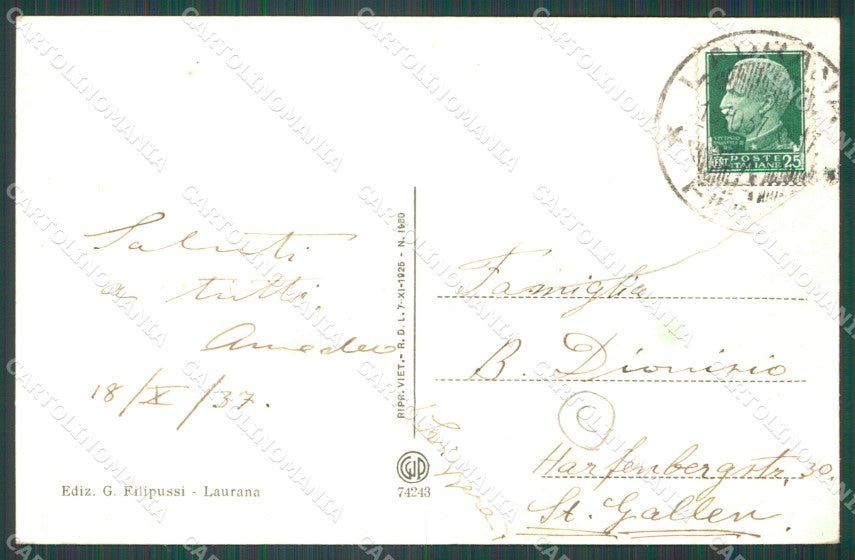 Saluti
a tutti.
Amedeo
18/X/37.
Ediz. G. Filipussi - Laurana
RIPR. VIET. - R. D. L. 7-XI-1925 - N. 1950
74243
Famiglia
B. Dionisio
C
Harfenbergstr. 30.
St. Gallen.
POSTE
ITALIANE
CENT 25
CARTOLINOMANIA